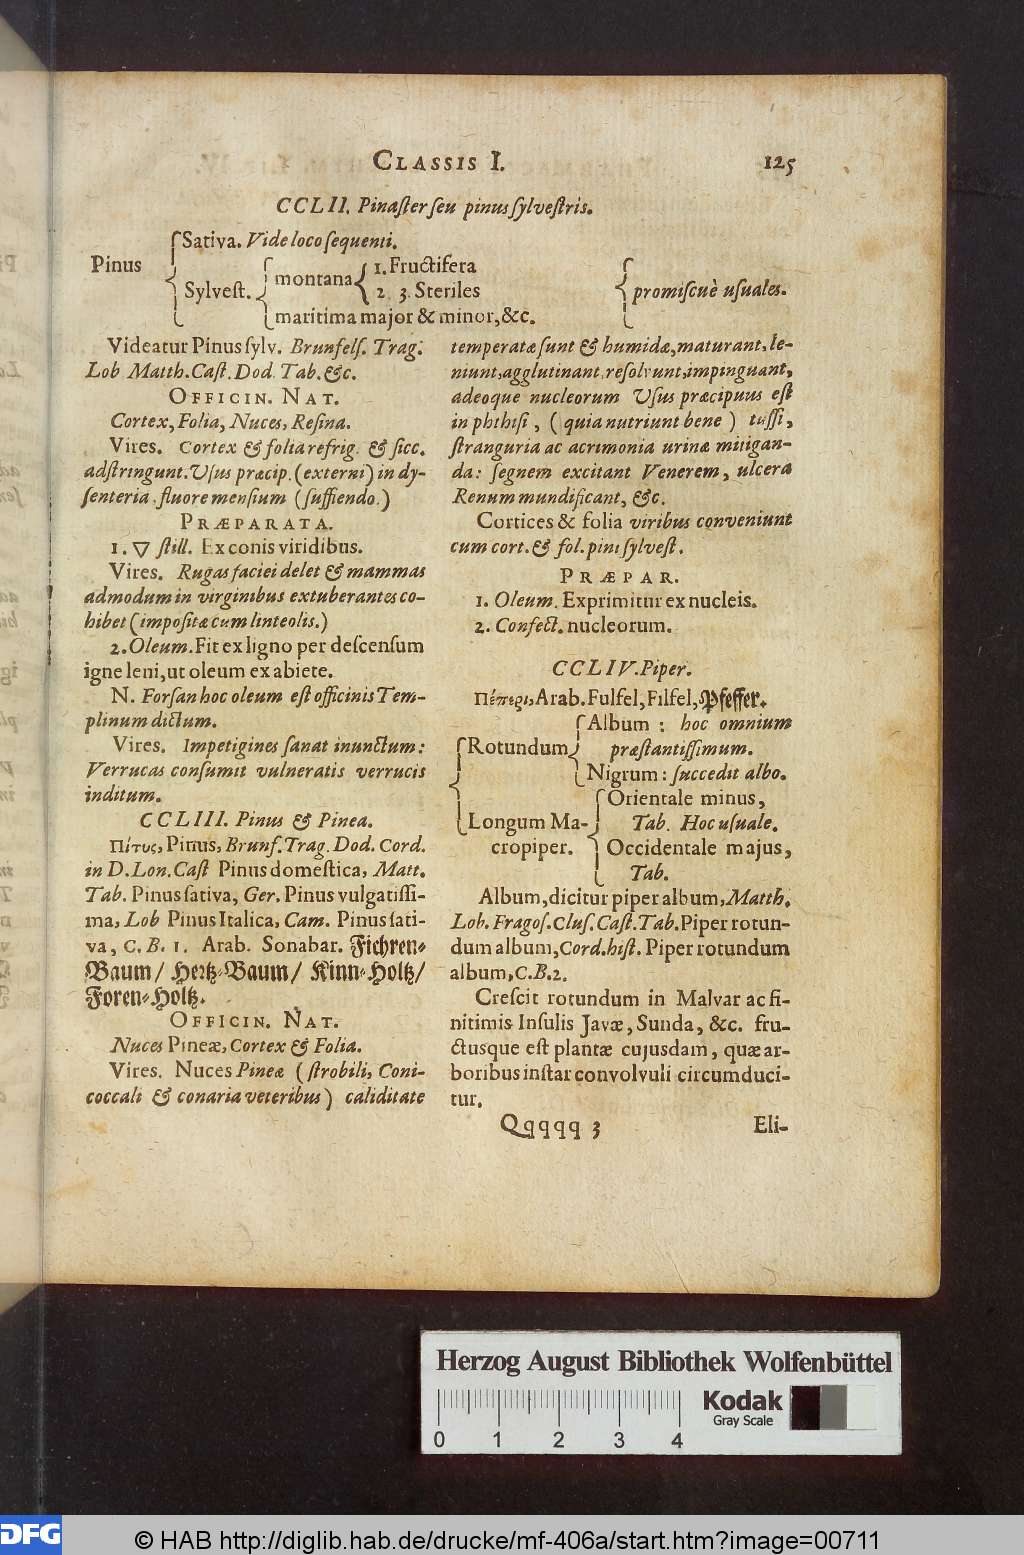 CLASSIS I. 125
CCLII. Pinaſter ſeu pinus ſylveſtris.
Sativa. Vide loco ſequenti.
Pinus
Sylveſt.
montana
1. Fructifera
2. 3. Steriles
maritima major & minor, &c.
promiſcuè uſuales.
Videatur Pinus ſylv. Brunfelſ. Trag.
Lob Matth. Caſt. Dod. Tab. &c.
OFFICIN. NAT.
Cortex, Folia, Nuces, Reſina.
Vires. Cortex & folia refrig. & ſicc.
adſtringunt. Uſus præcip. (externi) in dy-
ſenteria, fluore menſium (ſuffiendo.)
PRÆPARATA.
1. 🜄 ſtill. Ex conis viridibus.
Vires. Rugas faciei delet & mammas
admodum in virginibus extuberantes co-
hibet (impoſita cum linteolis.)
2. Oleum. Fit ex ligno per deſcenſum
igne leni, ut oleum ex abiete.
N. Forſan hoc oleum eſt officinis Tem-
plinum dictum.
Vires. Impetigines ſanat inunctum:
Verrucas conſumit vulneratis verrucis
inditum.
CCLIII. Pinus & Pinea.
Πίτυς, Pinus, Brunf. Trag. Dod. Cord.
in D. Lon. Caſt Pinus domeſtica, Matt.
Tab. Pinus ſativa, Ger. Pinus vulgatiſſi-
ma, Lob Pinus Italica, Cam. Pinus ſati-
va, C. B. 1. Arab. Sonabar. Fichren-
Baum/ Hertz-Baum/ Kinn-Holtz/
Foren-Holtz.
OFFICIN. NAT.
Nuces Pineæ, Cortex & Folia.
Vires. Nuces Pineæ (ſtrobili, Coni-
coccali & conaria veteribus) caliditate
temperatæ ſunt & humidæ, maturant, le-
niunt, agglutinant, reſolvunt, impinguant,
adeoque nucleorum Uſus præcipuus eſt
in phthiſi, (quia nutriunt bene) tuſſi,
ſtranguria ac acrimonia urinæ mitigan-
da: ſegnem excitant Venerem, ulcera
Renum mundificant, &c.
Cortices & folia viribus conveniunt
cum cort. & fol. pini ſylveſt.
PRÆPAR.
1. Oleum. Exprimitur ex nucleis.
2. Confect. nucleorum.
CCLIV. Piper.
Πέπερι, Arab. Fulfel, Filfel, Pfeffer.
Album: hoc omnium
Rotundum
præſtantiſſimum.
Nigrum: ſuccedit albo.
Orientale minus,
Longum Ma-
Tab. Hoc uſuale.
cropiper.
Occidentale majus,
Tab.
Album, dicitur piper album, Matth.
Lob. Fragoſ. Cluſ. Caſt. Tab. Piper rotun-
dum album, Cord. hiſt. Piper rotundum
album, C. B. 2.
Creſcit rotundum in Malvar ac fi-
nitimis Inſulis Javæ, Sunda, &c. fru-
ctusque eſt plantæ cujusdam, quæ ar-
boribus inſtar convolvuli circumduci-
tur.
Qqqqq 3 Eli-
Herzog August Bibliothek Wolfenbüttel
Kodak
Gray Scale
0 1 2 3 4
DFG
© HAB http://diglib.hab.de/drucke/mf-406a/start.htm?image=00711